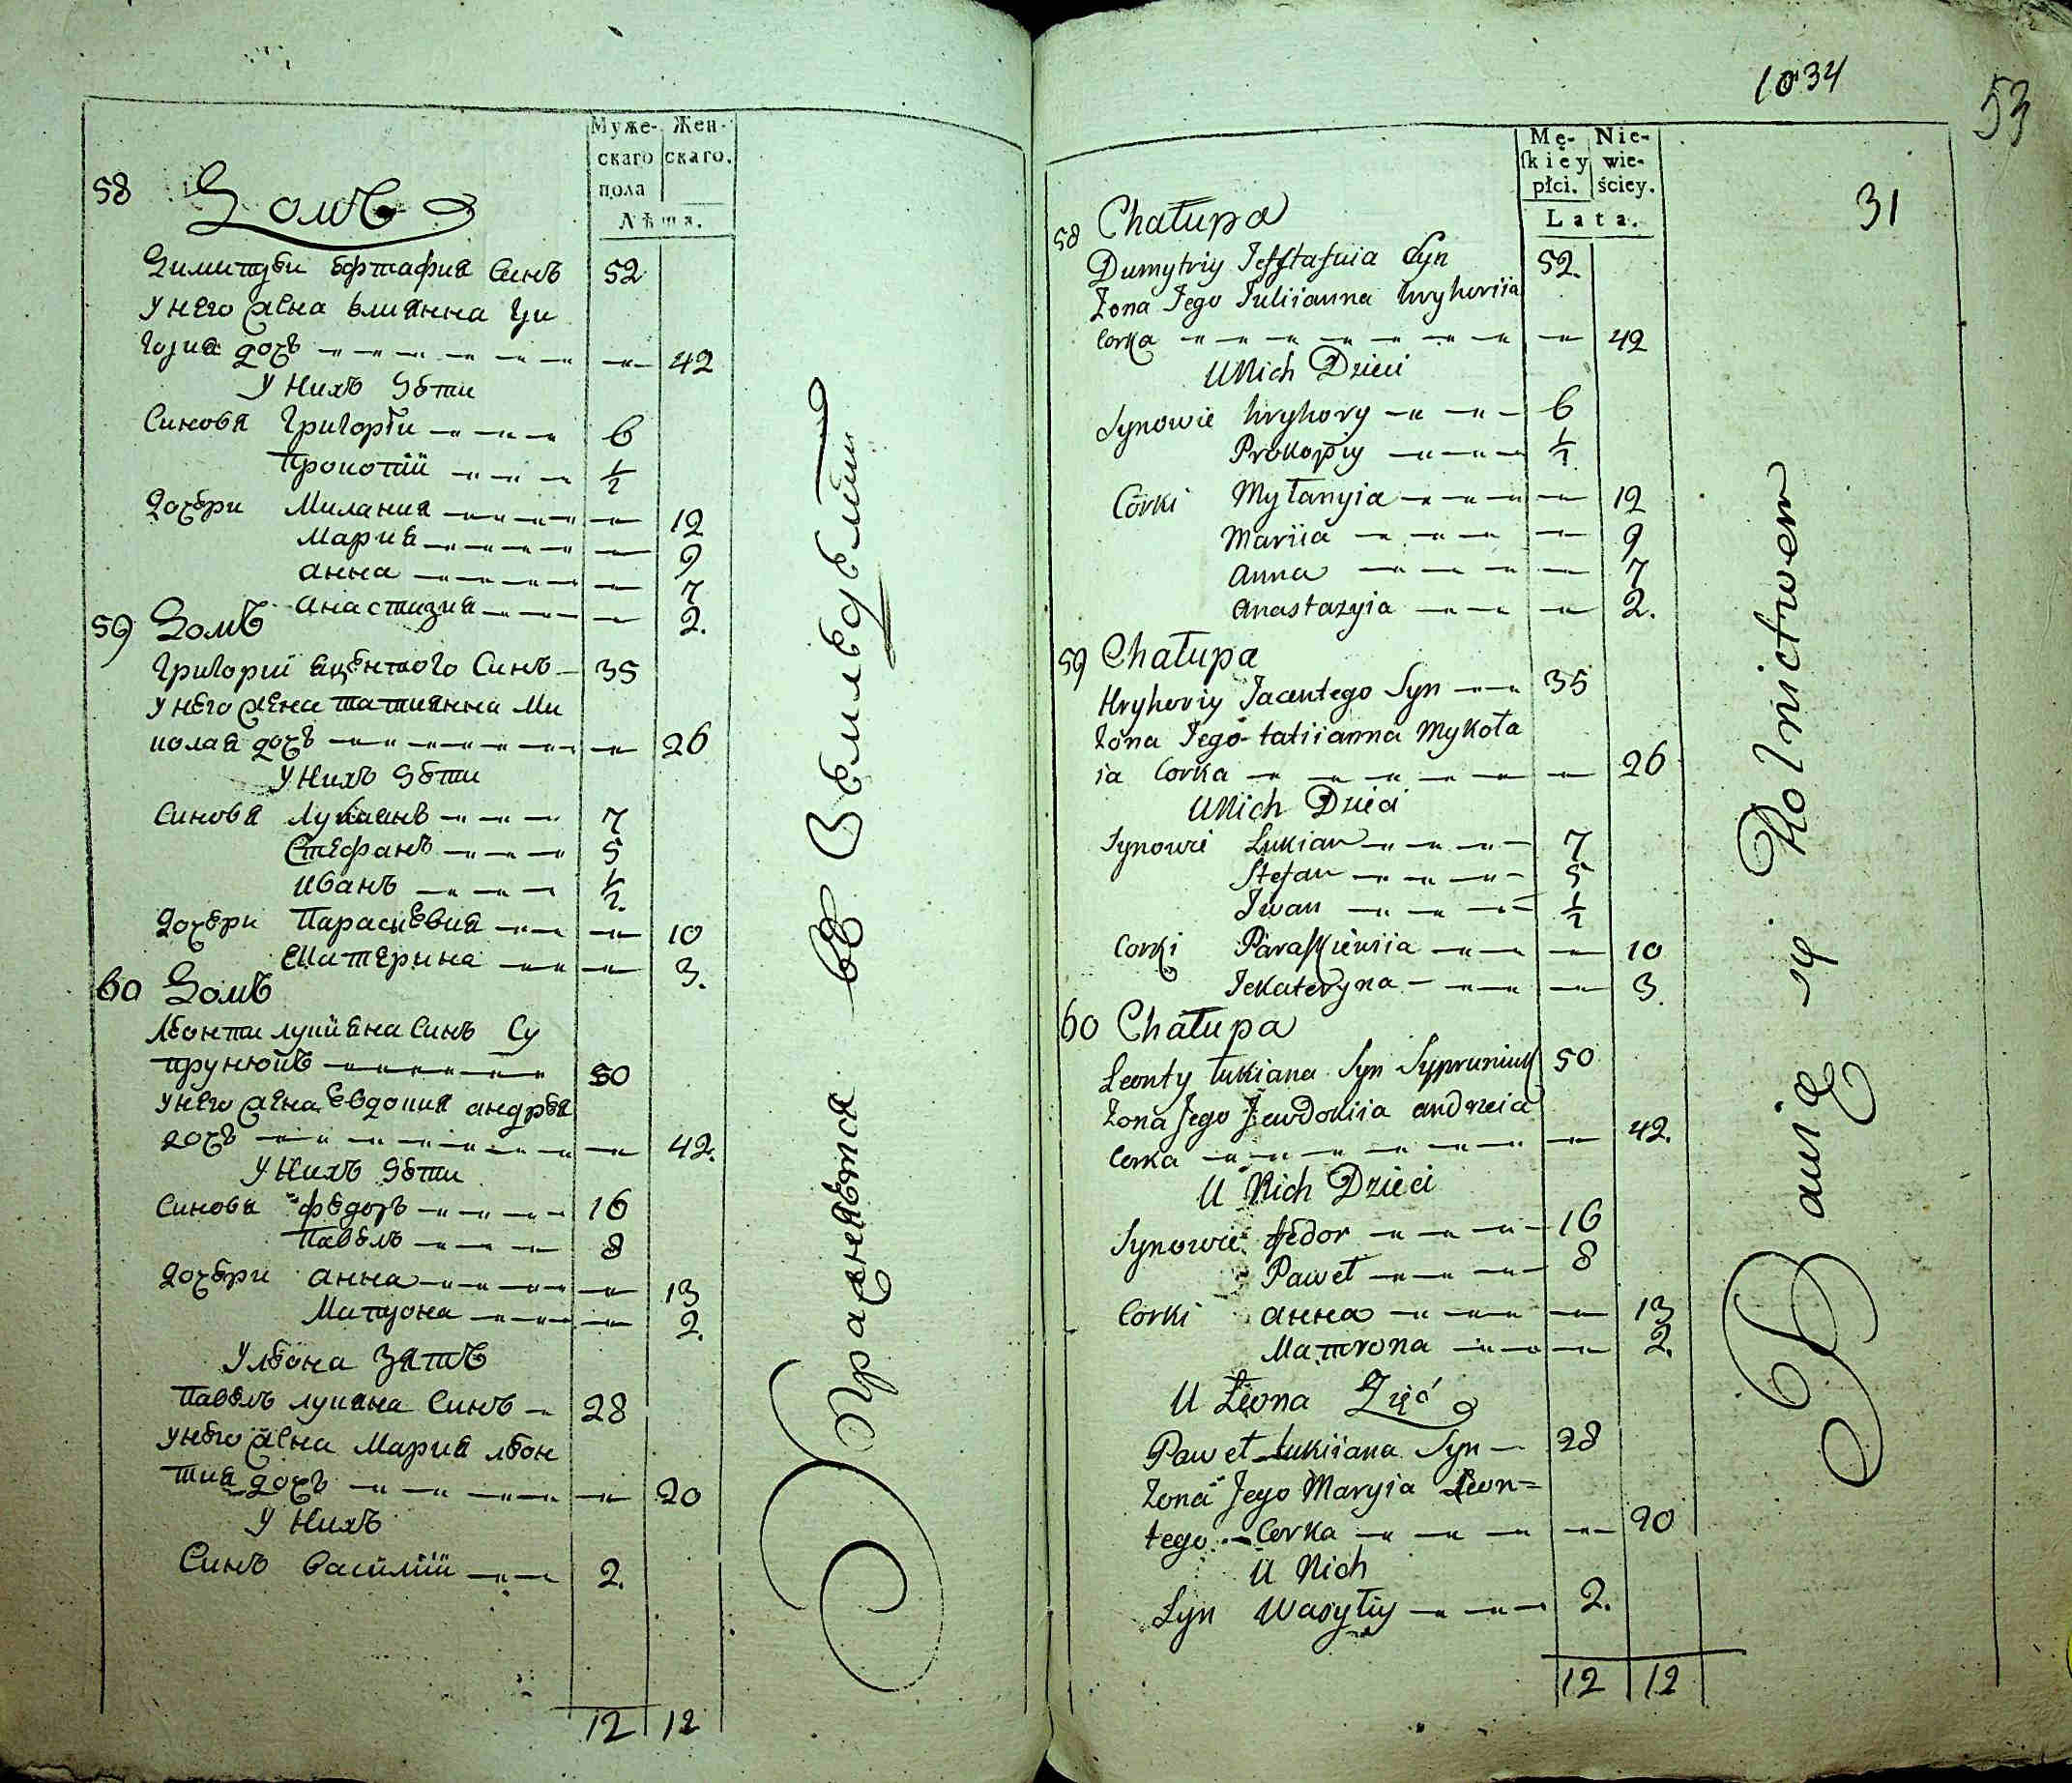 Муже- Жен-
скаго скаго.
пола
Лѣта.
58 Домъ
Димитрѣи Ефтафия Синъ 52
У него жена Елианна Гри
гория дочъ 42
У Нихъ Дѣти
Синовя Григорѣи 6
Прокопій 1/2
Дочѣри Милания 12
Мария 9
Анна 7
Анастазия 2.
59 Домъ
Григорий Яцентого Синъ 35
У него жена Татиянна Ми
колая дочъ 26
У Нихъ Дѣти
Синовя Лукаянъ 7
Стефанъ 5
Иванъ 1/2.
Дочѣри Параскевия 10
Екатерина 3.
60 Домъ
Лѣонти Лукияна Синъ Су
прунюкъ 50
У него жена Евдокия Андрѣя
дочъ 42.
У Нихъ Дѣти
Синовя Федоръ 16
Павѣлъ 8
Дочѣри Анна 13
Матрона 2.
У Лѣона Зять
Павѣлъ Лукяна Синъ 28
У него жена Мария Лѣон
тия дочъ 20
У Нихъ
Синъ Василий 2.
12 12
Упражнѣтся въ Земледѣлии
1034
53
31
Mę- Nie-
skiey wie-
płci. ściey.
Lata.
58 Chałupa
Dumytriy Jefstafuia Syn 52.
Żona Jego Juliianna hryhoriia
Corka 42
U Nich Dzieci
Synowie hryhory 6
Prokopiy 1/2
Córki Myłanyia 12
Mariia 9
Anna 7
Anastazyia 2.
59 Chałupa
Hryhoriy Jacentego Syn 35
Żona Jego tatiianna Mykoła
ia Corka 26
U Nich Dzieci
Synowie Łukian 7
Stefan 5
Iwan 1/2
Corki Paraskiewiia 10
Jekateryna 3.
60 Chałupa
Leonty Łukiana Syn Sypruniuk 50
Żona Jego Jewdokiia andreia
Corka 42.
U Nich Dzieci
Synowie fedor 16
Paweł 8
Corki анна 13
Матrona 2.
U Leona Zięć
Paweł Łukiiana Syn 28
Żona Jego Maryia Leon=
tego Corka 20
U Nich
Syn Wasyłiy 2.
12 12
Bawią się Rolnictwem